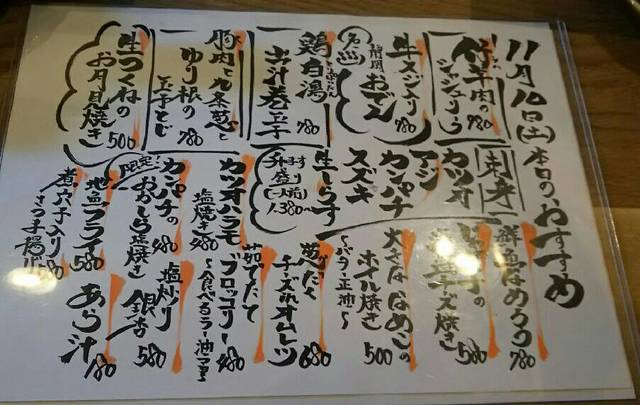 11月10日(土)本日の、おすすめ
竹羊肉の
ジャンボつくろう
780
牛スジ入り
静岡おでん
780
鶏白湯
出汁巻玉子
780
豚肉と九条葱と
ゆり根の
玉子とじ
780
生つくねの
お月見焼き
500
刺身
カツオ
アジ
カンパチ
スズキ
生しらす
升盛り(一人前)
1,380
カツオハラモ
塩焼き
480
限定!
カンパチの
おかしら塩焼き
480
地魚フライ
580
煮穴子入り
さつま揚げ
鮮魚なめろう
780
チーズ焼き
580
大きななめこの
ホイル焼き
〜バター正油〜
500
チーズinオムレツ
680
茹でたて
ブロッコリー
〜食べるラー油マヨ〜
480
塩炒り
銀杏
580
あら汁
180